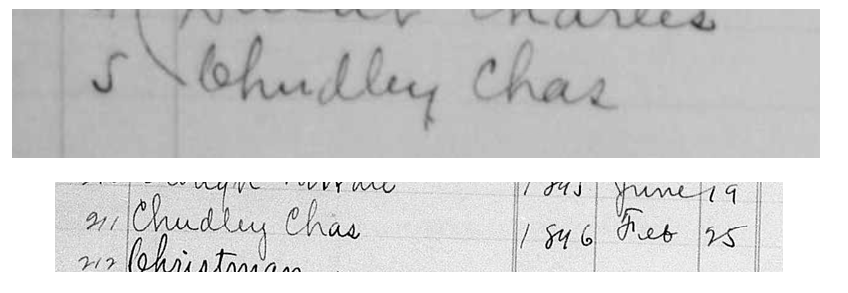 Charles
5 Chudley Chas
1895 June 19
211 Chudley Chas 1896 Feb 25
212 Christman